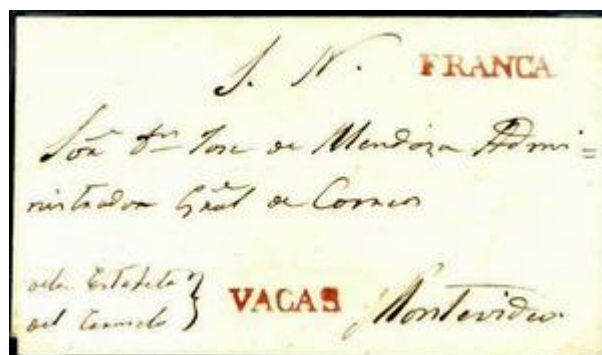 S. N. FRANCA
Sor. Dn. Jose de Mendoza Admi=
nistrador Gral de Correos
de la Estafeta
del Carmelo } VACAS Montevideo.